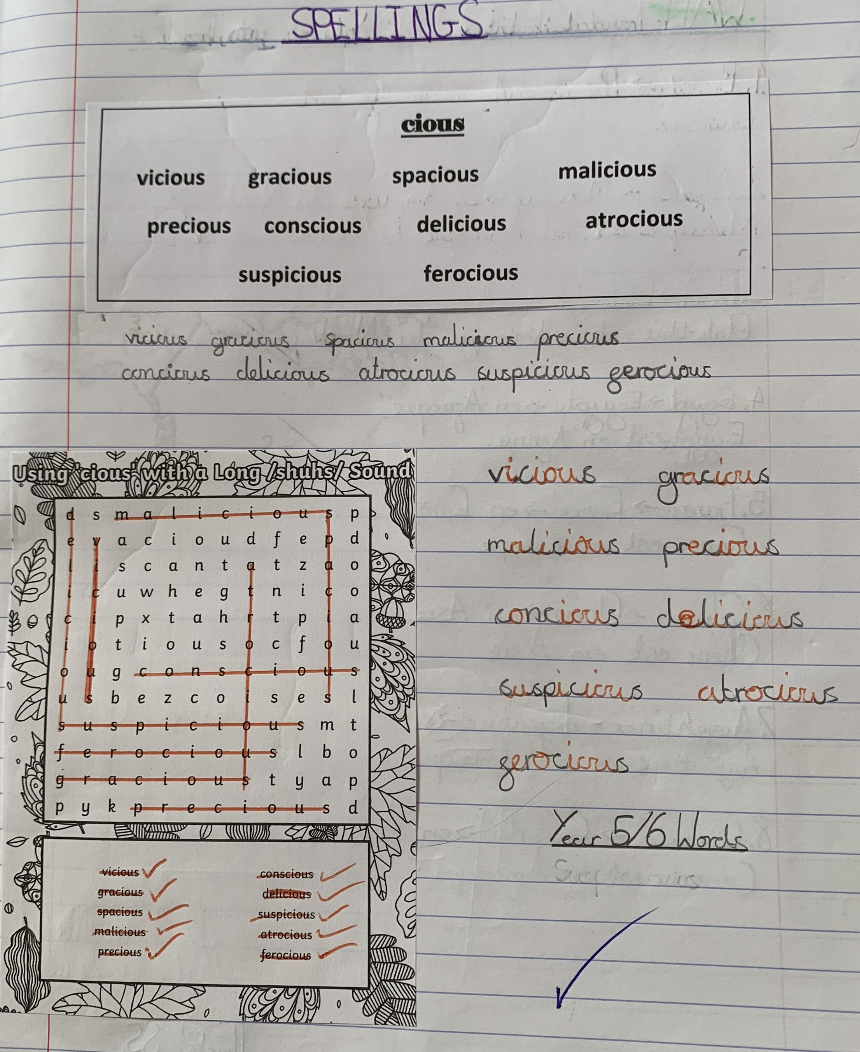 SPELLINGS
cious
vicious gracious spacious malicious
precious conscious delicious atrocious
suspicious ferocious
vicious gracious spacious malicious precious
concious delicious atrocious suspicious gerocious
Using 'cious' with a Long /shuhs/ Sound
d s m a l i c i o u s p
e v a c i o u d f e p d
l i s c a n t a t z a o
i c u w h e g t n i c o
c i p x t a h r t p i a
i o t i o u s o c f o u
o u g c o n s c i o u s
u s b e z c o i s e s l
s u s p i c i o u s m t
f e r o c i o u s l b o
g r a c i o u s t y a p
p y k p r e c i o u s d
vicious conscious
gracious delicious
spacious suspicious
malicious atrocious
precious ferocious
vicious gracious
malicious precious
concious delicious
suspicious atrocious
gerocious
Year 5/6 Words